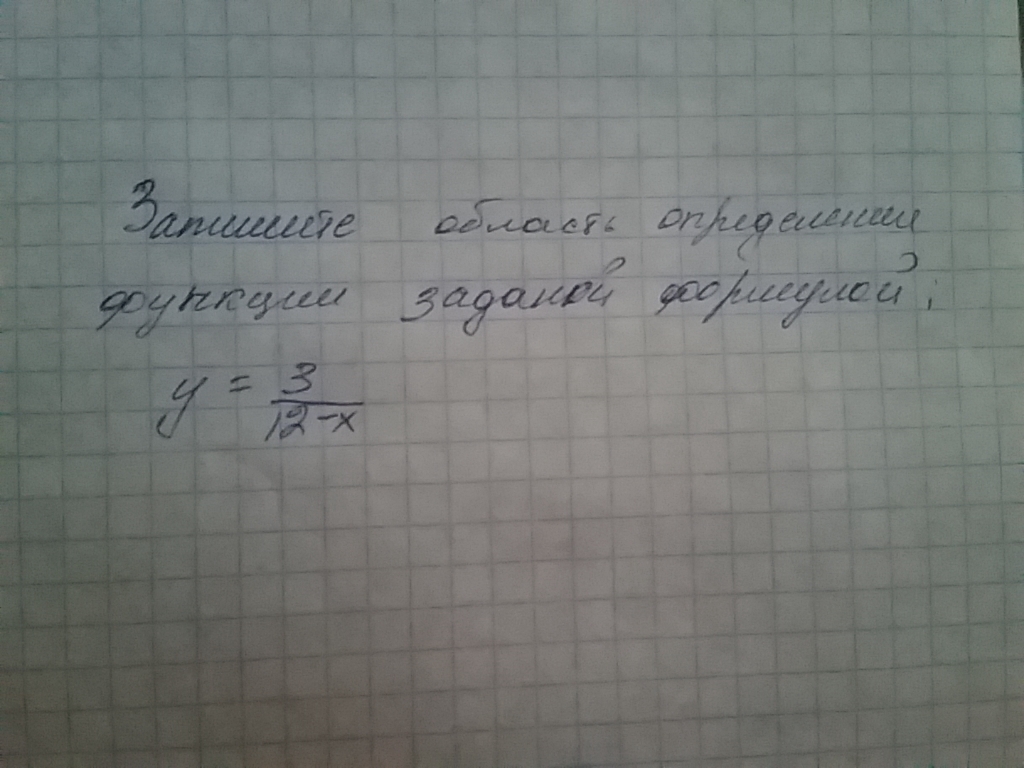 Запишите область определения
функции заданой формулой:
y = 3/(12-x)